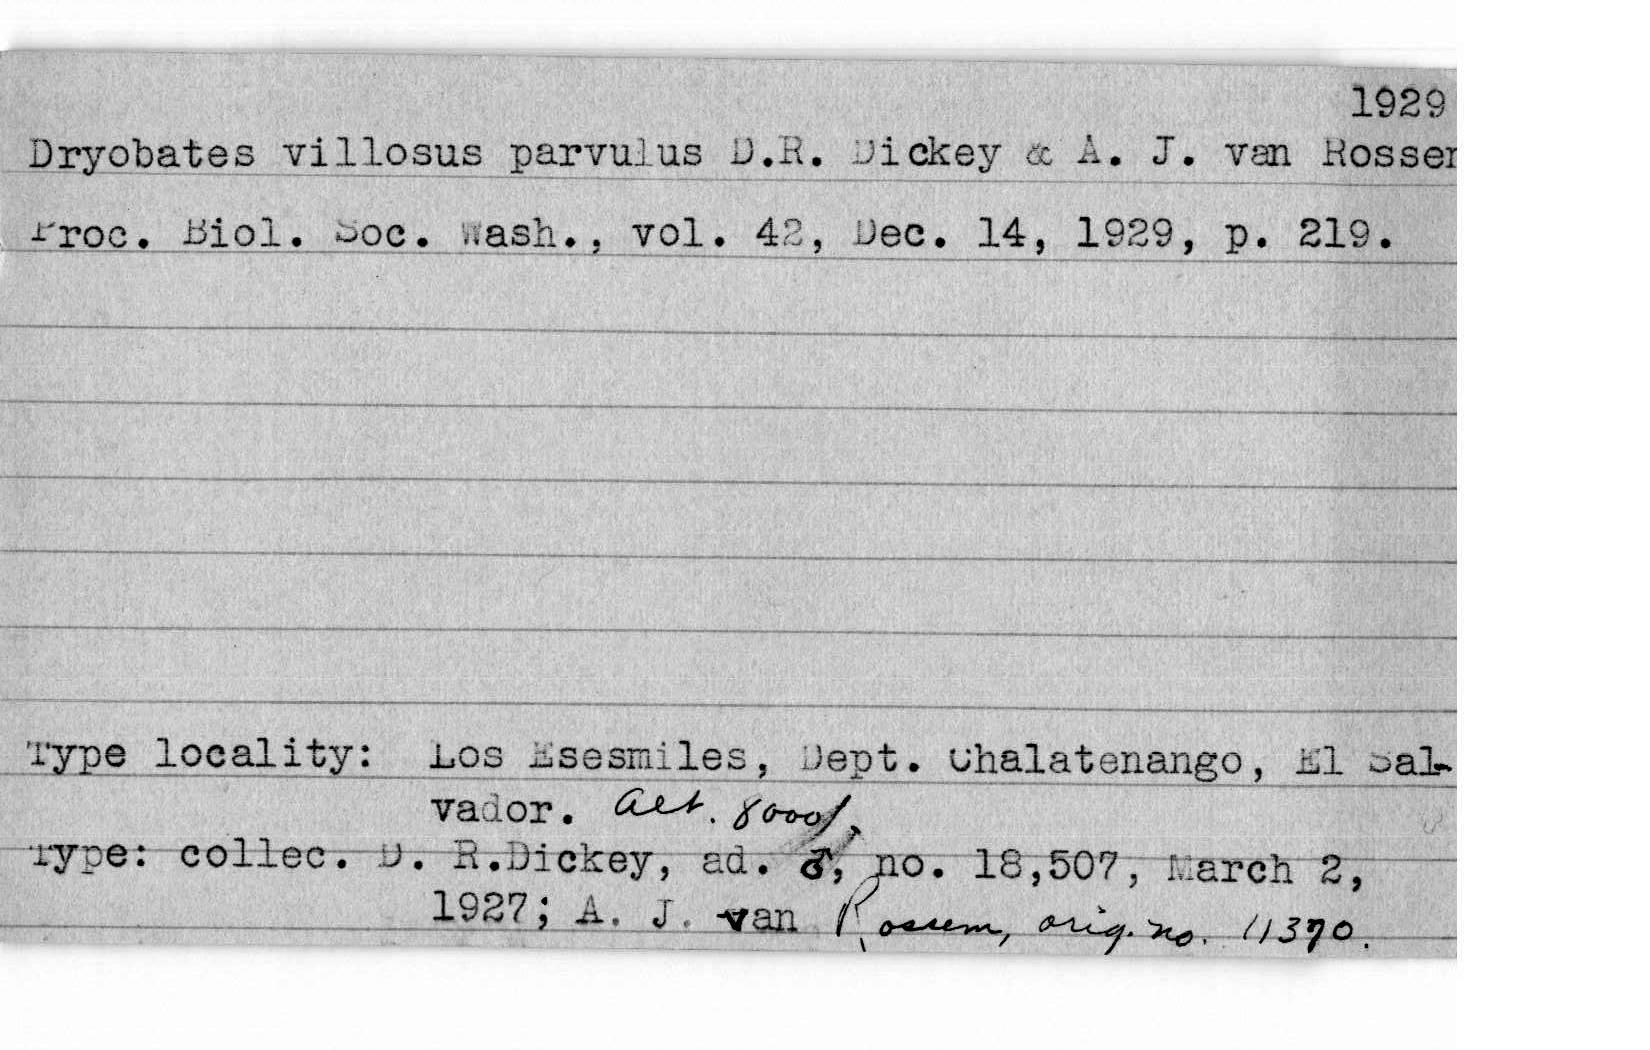 1929
Dryobates villosus parvulus D.R. Dickey & A. J. van Rossem
Proc. Biol. Soc. Wash., vol. 42, Dec. 14, 1929, p. 219.
Type locality: Los Esesmiles, Dept. Chalatenango, El Sal-
vador. Alt. 8000 f.
Type: collec. D. R.Dickey, ad. ♂, no. 18,507, March 2,
1927; A. J. van Rossem, orig. no. 11370.